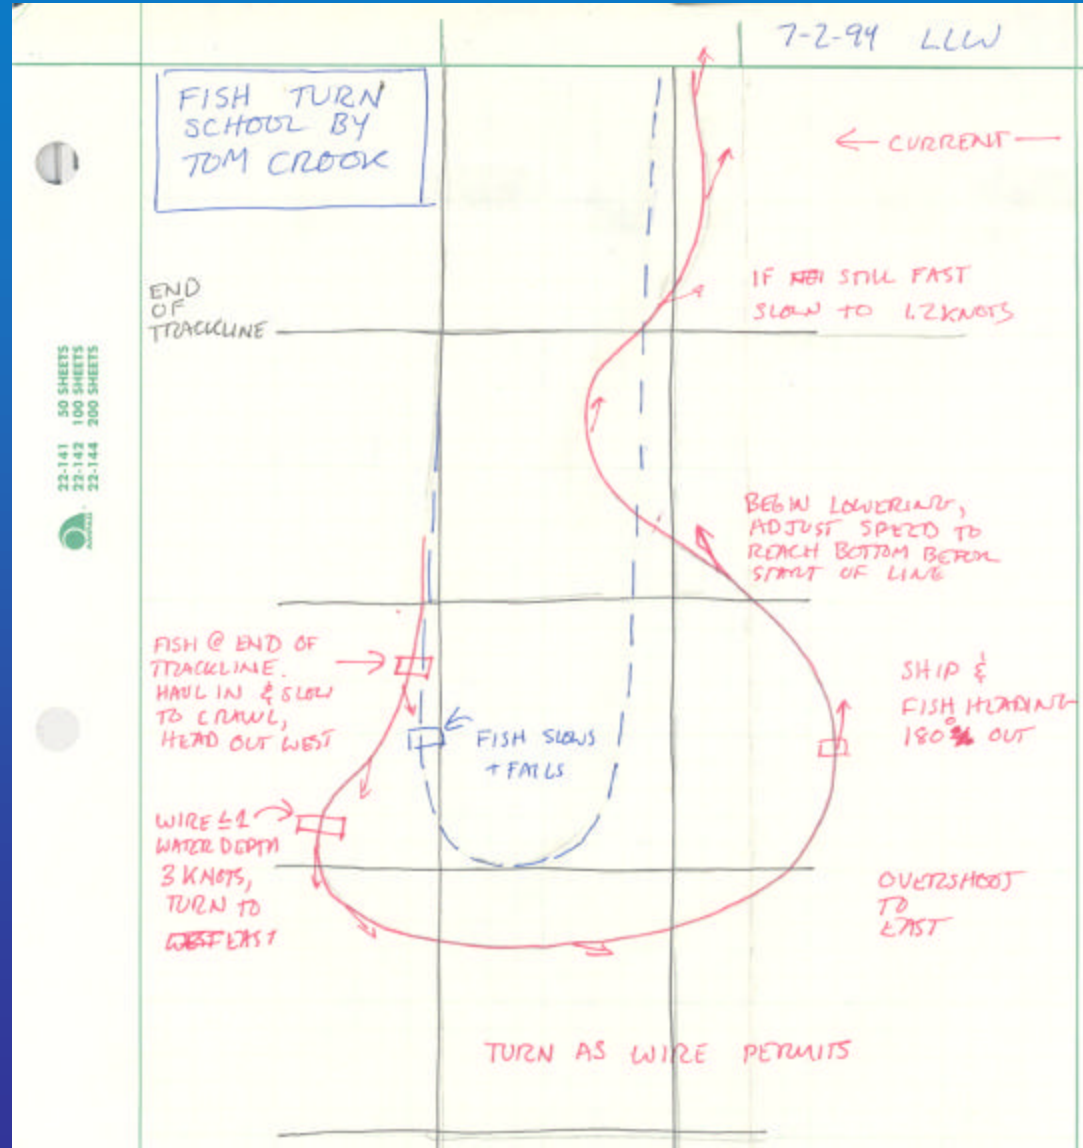 7-2-94 LLW
FISH TURN
SCHOOL BY
TOM CROOK
← CURRENT —
END
OF
TRACKLINE
IF STILL FAST
SLOW TO 1.2 KNOTS
22-141 50 SHEETS
22-142 100 SHEETS
22-144 200 SHEETS
BEGIN LOWERING,
ADJUST SPEED TO
REACH BOTTOM BEFOR
START OF LINE
FISH @ END OF
TRACKLINE.
HAUL IN & SLOW
TO CRAWL,
HEAD OUT WEST
FISH SLOWS
+ FALLS
SHIP &
FISH HEADING
180° OUT
WIRE ≤1
WATER DEPTH
3 KNOTS,
TURN TO
EAST
OVERSHOOT
TO
EAST
TURN AS WIRE PERMITS